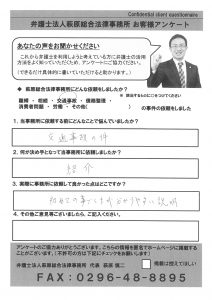 Confidential client questionnaire
弁護士法人萩原総合法律事務所 お客様アンケート
あなたの声をお聞かせください
これから弁護士を利用しようと考えている方に弁護士の活用
方法をよく知っていただくため、アンケートにご協力ください。
(できるだけ具体的に書いていただけると助かります。)
◆ 萩原総合法律事務所にどんな依頼をしましたか?
離婚・相続・交通事故・債務整理・
消費者問題・労働・その他( )の事件を依頼をしました
1. 当事務所に依頼する前にどんなことで悩んでいましたか?
交通事故の件
2. 何が決め手となって当事務所に依頼しましたか?
紹介
3. 実際に事務所に依頼して良かった点はどこですか?
初めての事でしたがわかりやすい説明
4. その他ご意見等ございましたら、ご記入ください。
アンケートのご協力ありがとうございます。こちらの情報を匿名でホームページに掲載する
ことがございます。(不許可の方は下記にチェックをお願いします)
弁護士法人萩原総合法律事務所 代表 萩原 慎二
掲載は控えてほしい
FAX:0296-48-8895